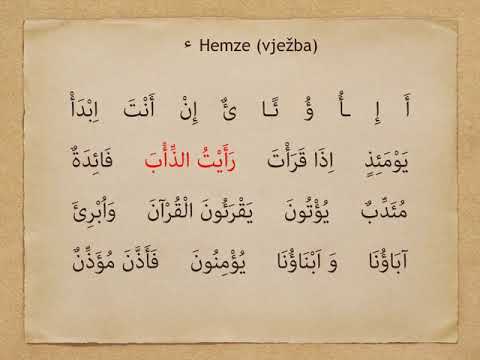 ء Hemze (vježba)
أَ إِ ـأُ ؤُ ئًـا ئٌ إِنْ أَنْتَ اِبْدَأْ
يَوْمَئِذٍ اِذَا قَرَأْتَ رَأَيْتُ الذِّأْبَ فَائِدَةٌ
مُئَدِّبٌ يُؤْتُونَ يَقْرَئُونَ الْقُرْآنَ وَاُبْرِئَ
آبَاؤُنَا وَ اَبْنَاؤُنَا يُؤْمِنُونَ فَأَذَّنَ مُؤَذِّنٌ